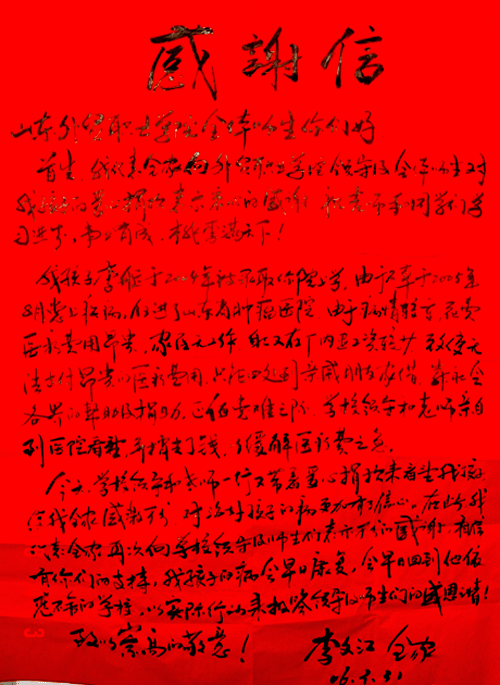 感謝信
山东外贸职业学院全体师生你们好
首先 我代表全家向外贸职业学院领导及全体师生对
我孩子的爱心捐助表示衷心的感谢 祝老师和同学们学
习进步,书山有成,桃李满天下!
我孩子李 于2004年被录取你院学,由于在2005年
8月患上 病,住进了山东省肿瘤医院 由于病情较重,花费
医疗费用昂贵,家庭无工作 又在厂内工资较少 致使无
法支付昂贵的医疗费用,只能 到亲戚朋友家借,并社会
各界的帮助及捐助,正值危难之际,学校领导和老师亲自
到医院看望,并捐出了钱,了缓解医疗费之急。
今天,学校领导和老师一行又带着爱心捐款来看望我孩
使我全家感激万分 对治好孩子的病更加有了信心。在此我
代表全家再次向学校领导及师生们表示万分感谢,相信
有你们的支持,我孩子的病会早日康复,会早日回到他依
恋不舍的学校,以实际行动来报答领导及师生们的感恩情!
致以崇高的敬意!
李文江 全家
06.5.31